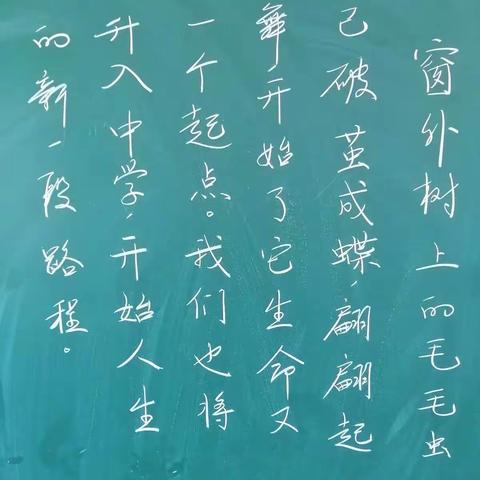 窗外树上的毛毛虫
已破茧成蝶，翩翩起
舞，开始了它生命又
一个起点。我们也将
升入中学，开始人生
的新一段路程。